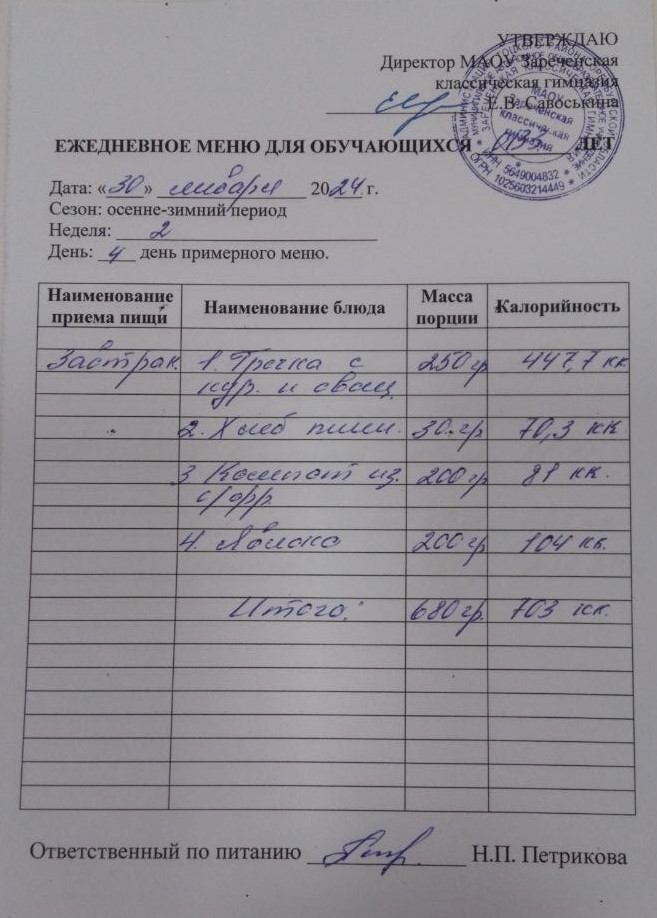 УТВЕРЖДАЮ
Директор МАОУ Зареченская
классическая гимназия
Е.В. Савоськина
ЕЖЕДНЕВНОЕ МЕНЮ ДЛЯ ОБУЧАЮЩИХСЯ ОВЗ ЛЕТ
Дата: «30» января 2024 г.
Сезон: осенне-зимний период
Неделя: 2
День: 4 день примерного меню.
Наименование приема пищи Наименование блюда Масса порции Калорийность
Завтрак. 1. Гречка с 250 гр 447,7 кк
кур. и овощ.
2. Хлеб пшен. 30 гр 70,3 кк
3 Компот из 200 гр 81 кк.
с/фр.
4. Яблоко 200 гр 104 кк.
Итого: 680 гр. 703 кк.
Ответственный по питанию Н.П. Петрикова
МАОУ
Зареченская
классическая
гимназия
ИНН 5649004832
ОГРН 1025603214449